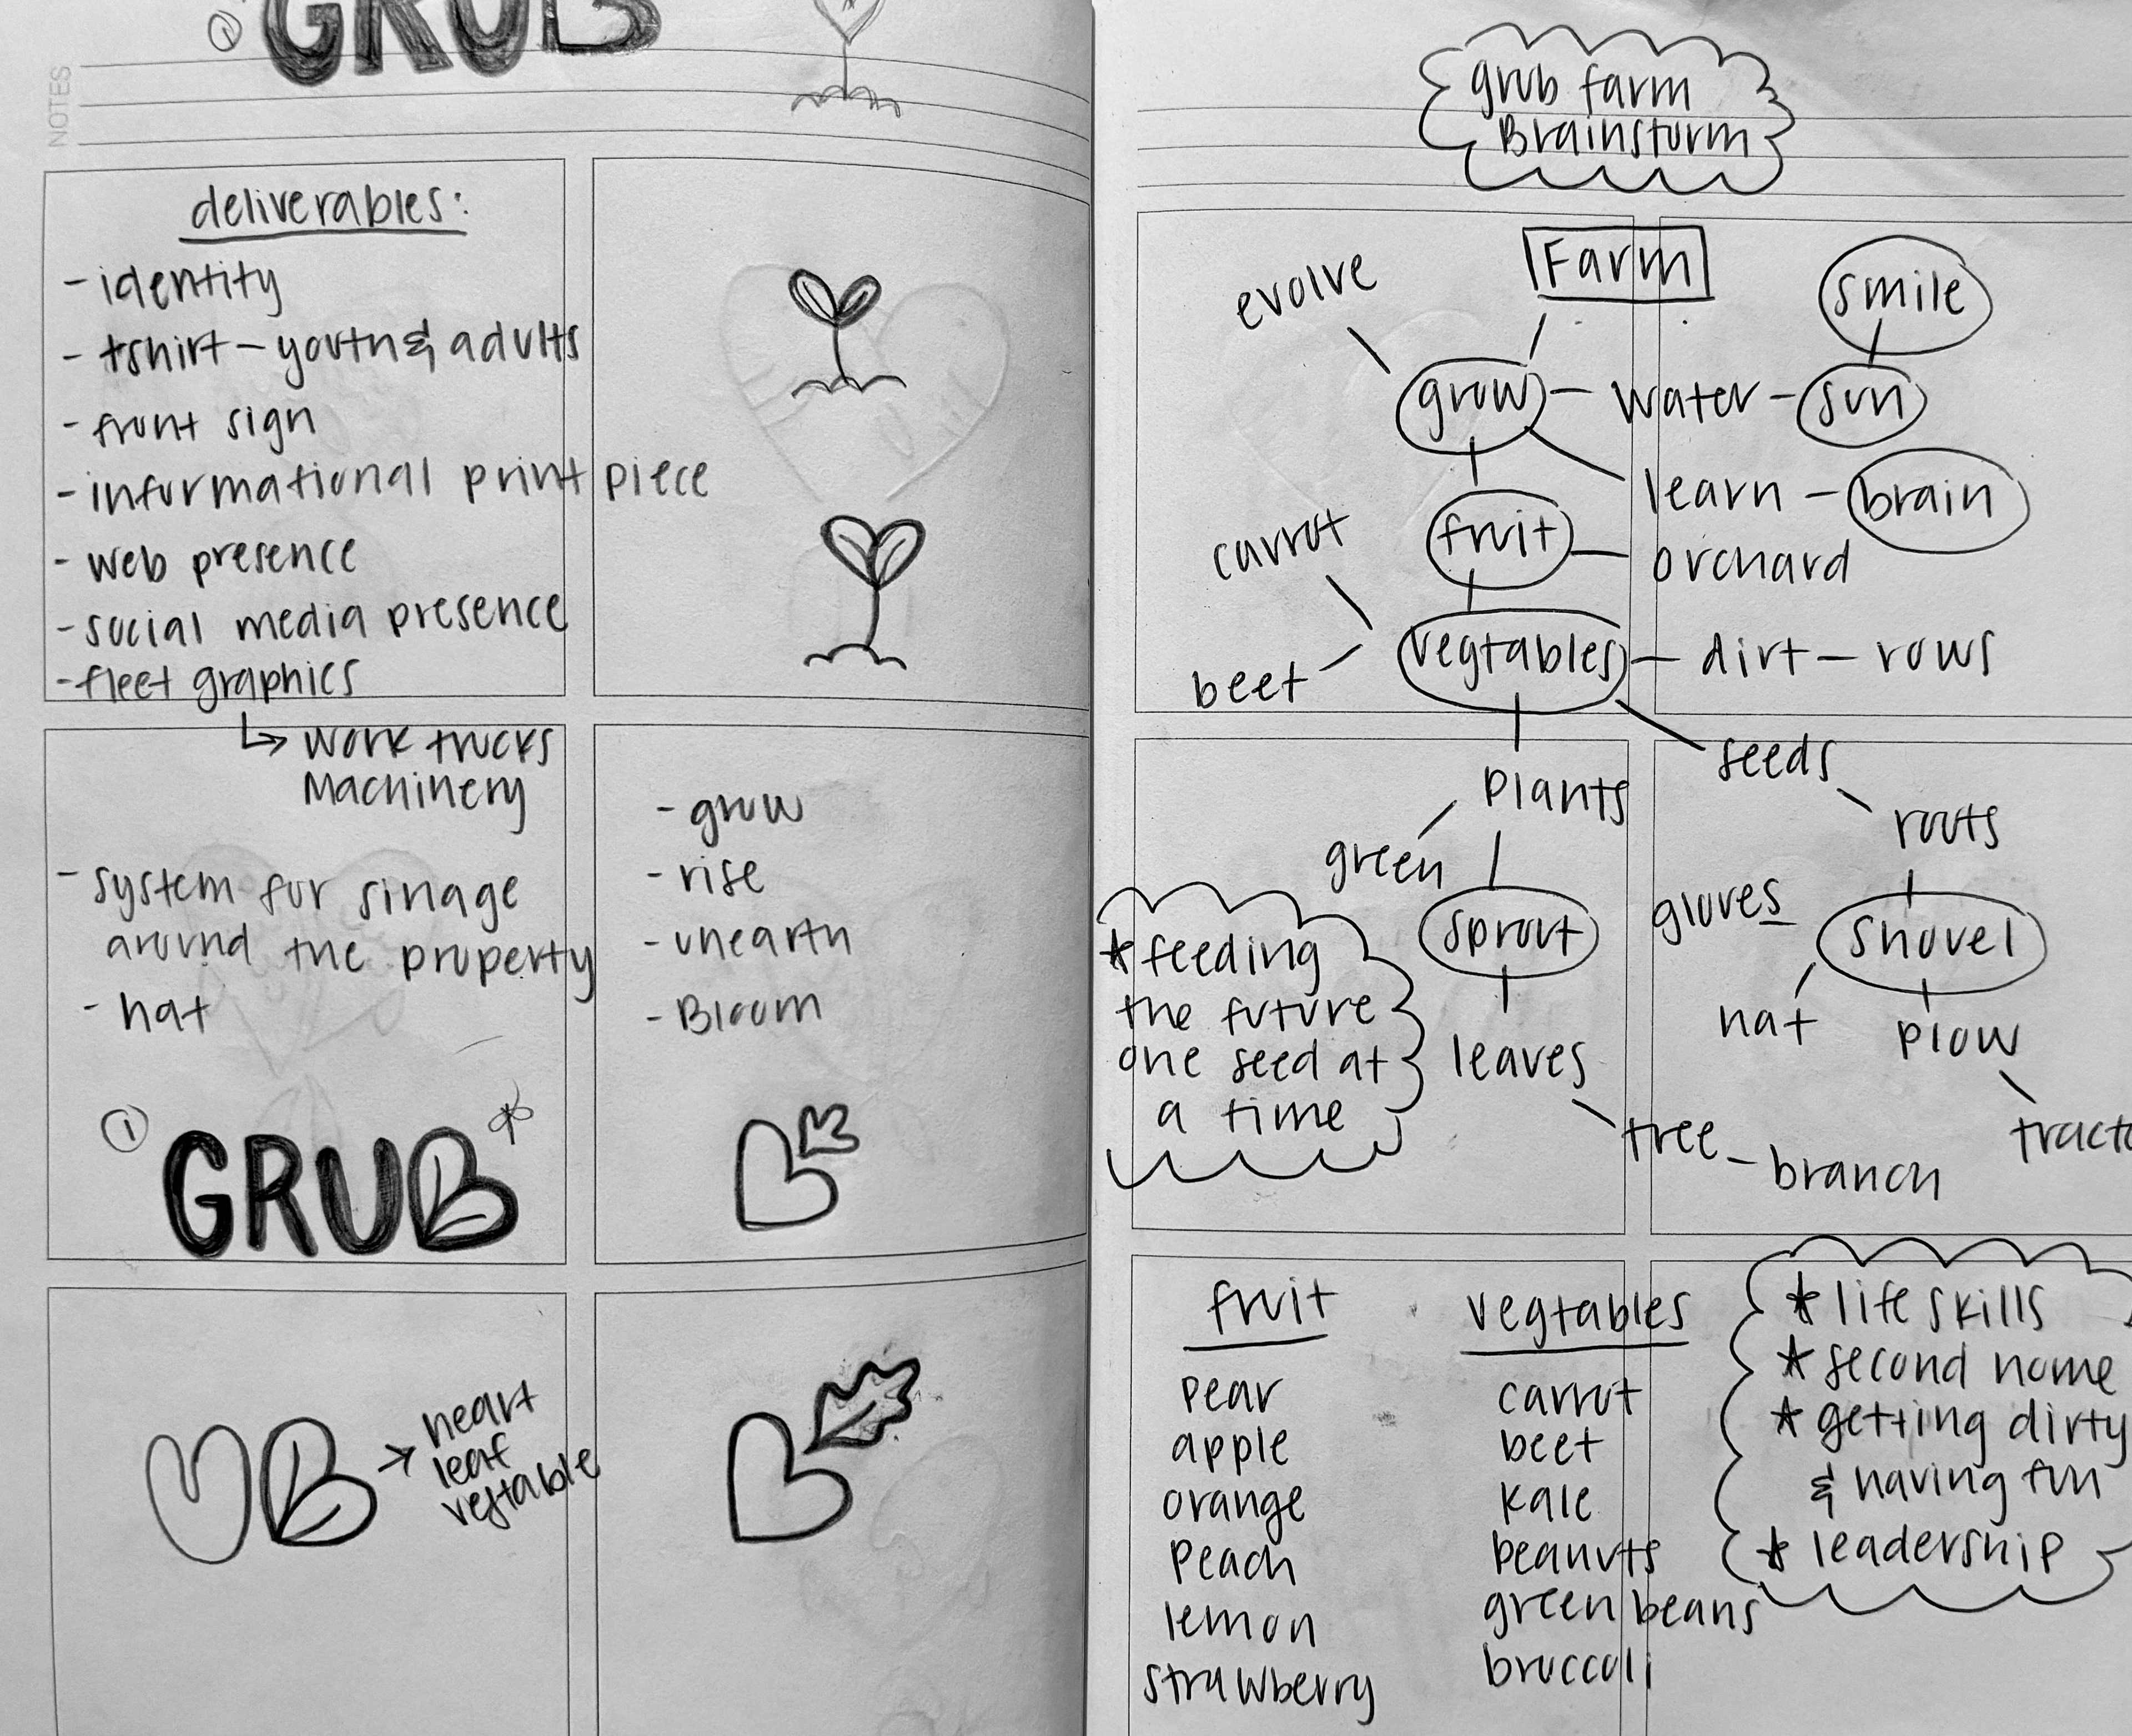 ② GRUB
NOTES
deliverables:
- identity
- tshirt - youth & adults
- front sign
- informational print piece
- web presence
- social media presence
- fleet graphics
↳ work trucks
Machinery
- system for sinage
around the property
- hat
- grow
- rise
- unearth
- Bloom
① GRUB
B → heart
leaf
vegtable
grub farm
Brainstorm
Farm
evolve
smile
grow - water - sun
learn - brain
carrot
fruit - orchard
vegtables - dirt - rows
beet
seeds
plants
roots
green
gloves
sprout
shovel
* feeding
the future
one seed at
a time
hat
plow
leaves
tree - branch
tracto
fruit
pear
apple
orange
peach
lemon
strawberry
vegtables
carrot
beet
kale
peanuts
green beans
broccoli
* life skills
* second home
* getting dirty
& having fun
* leadership